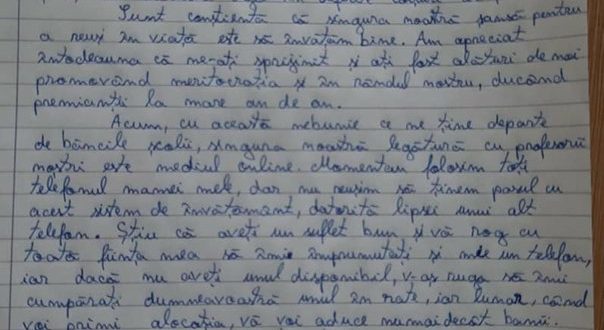 Sunt conștientă că singura noastră șansă pentru
a reuși în viață este să învățăm bine. Am apreciat
întodeauna că ne-ați sprijinit și ați fost alături de noi
promovând meritocrația și în rândul nostru, ducând
premianții la mare an de an.
Acum, cu această nebunie ce ne ține departe
de băncile școlii, singura noastră legătură cu profesorii
noștri este mediul online. Momentan folosim toți
telefonul mamei mele, dar nu reușim să ținem pasul cu
acest sistem de învățământ, datorită lipsei unui alt
telefon. Știu că aveți un suflet bun și vă rog cu
toată ființa mea să îmi împrumutați și mie un telefon,
iar dacă nu aveți unul disponibil, v-aș ruga să îmi
cumpărați dumneavoastră unul în rate, iar lunar, când
voi primi alocația, vă voi aduce numaidecât banii.